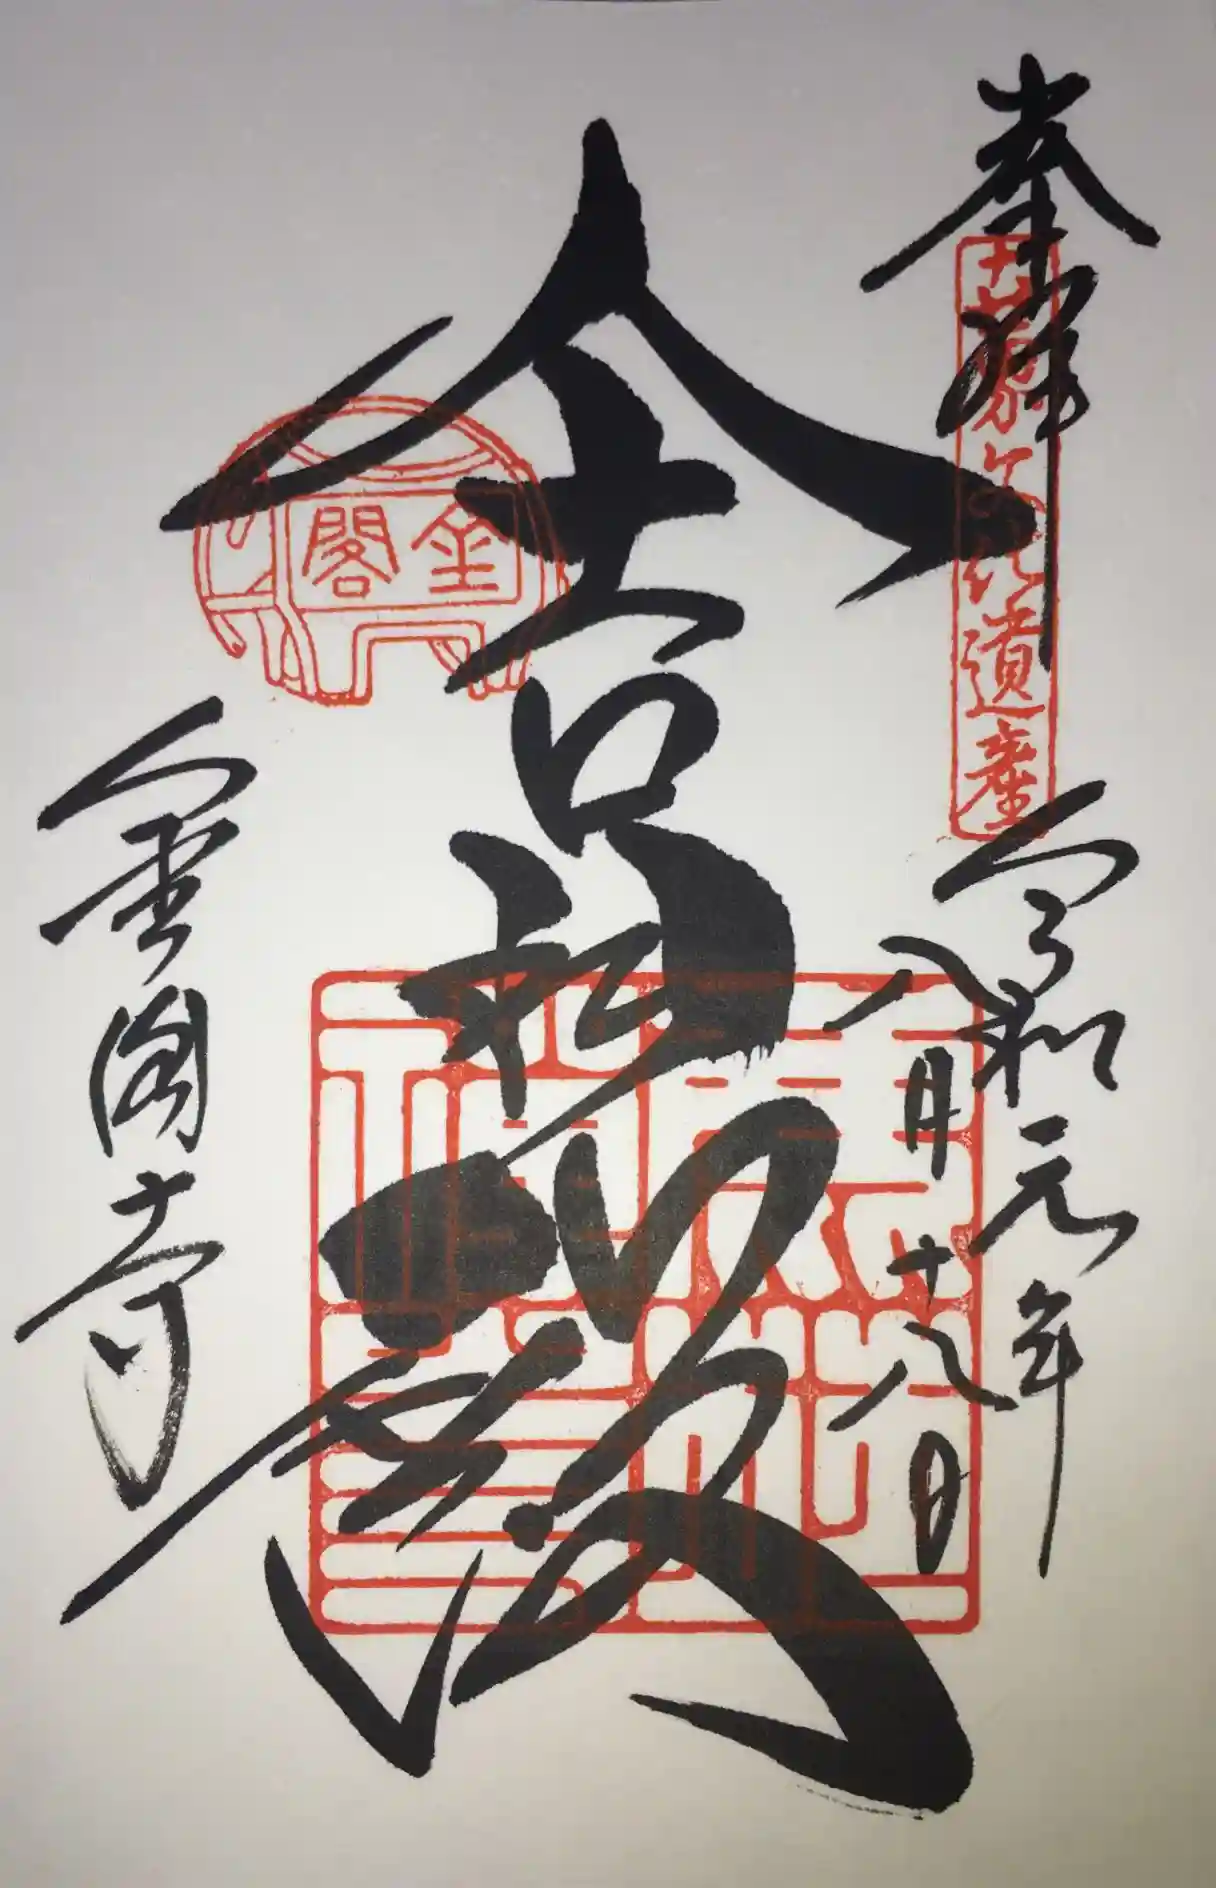 奉拝
世界文化遺産
令和元年
八月十八日
舎利殿
金閣
金閣寺